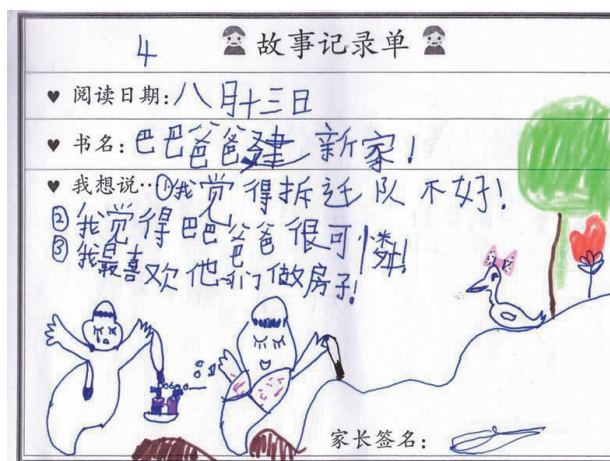 4
故事记录单
阅读日期:八月十三日
书名:巴巴爸爸建新家!
我想说··①我觉得拆迁队不好!
②我觉得巴巴爸爸很可怜!
③我最喜欢他们做房子!
家长签名: